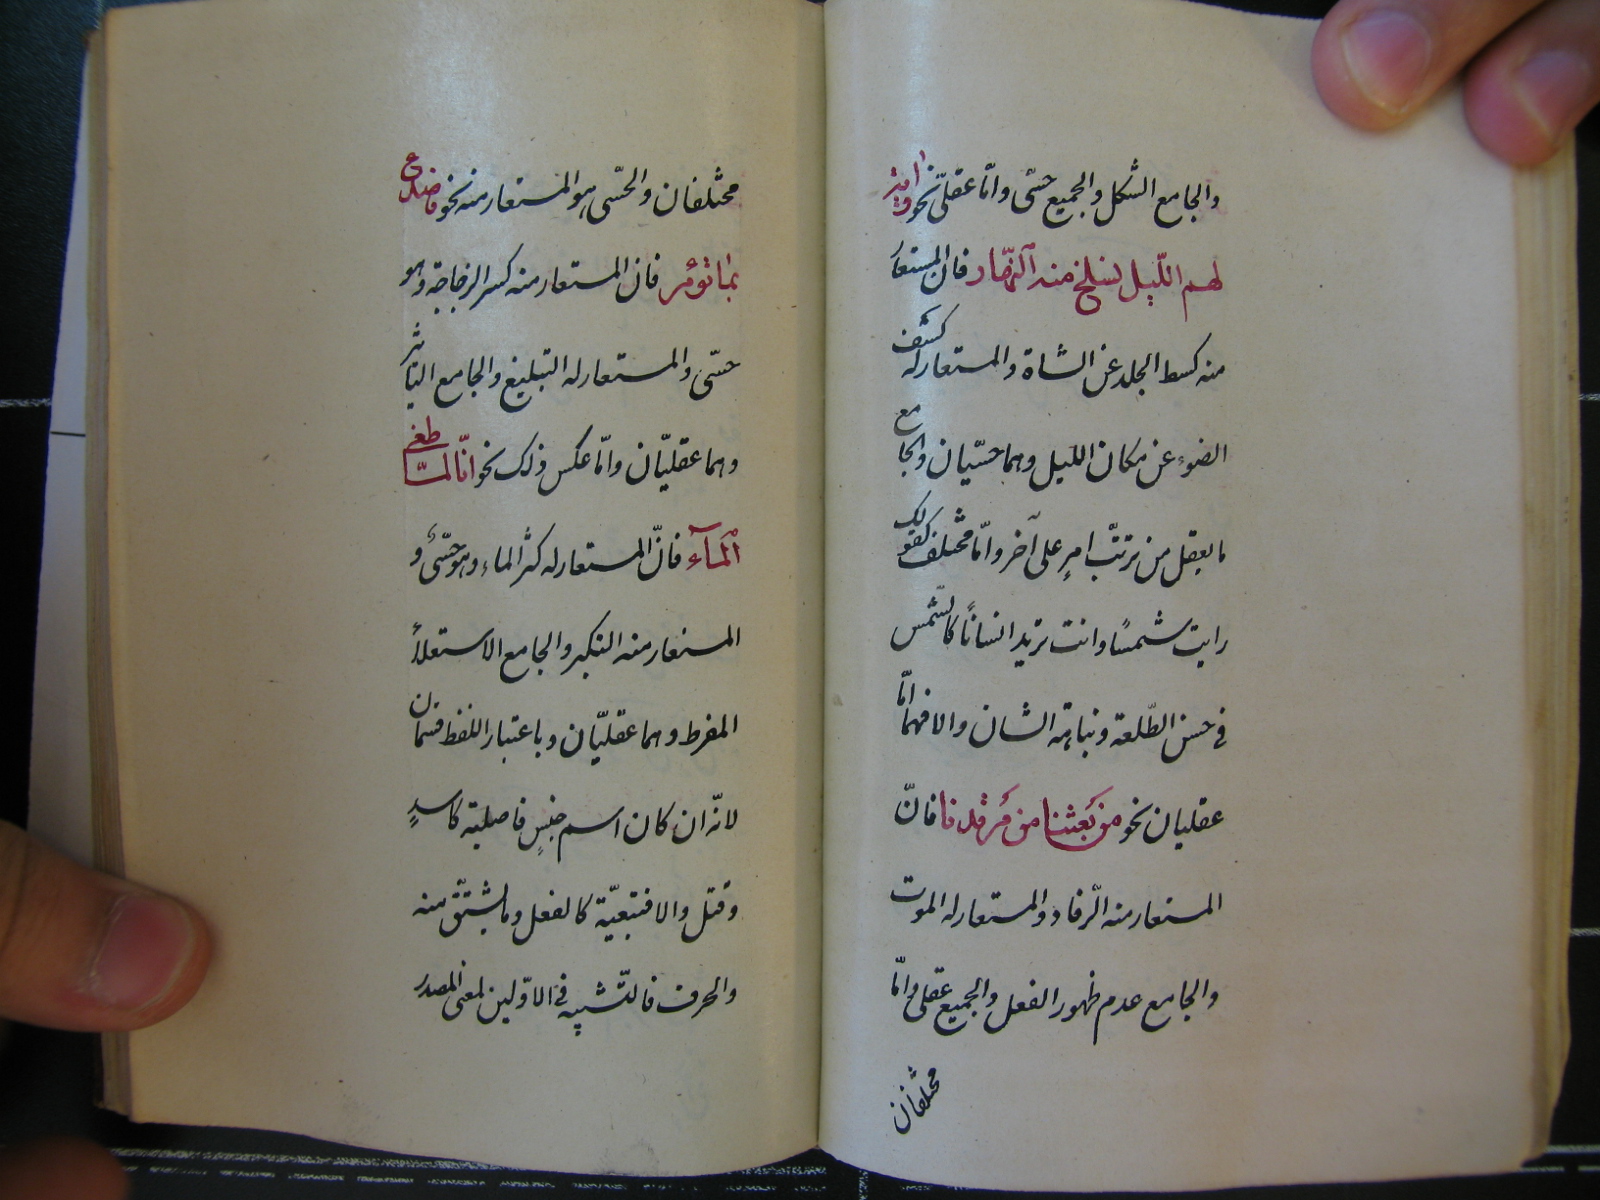 والجامع الشكل والجميع حسّى وامّا عقلىّ نحو واية
لهم اللّيل نسلخ منه النّهار فان المستعار
منه كسط الجلد عن الشاة والمستعار له كشف
الضوء عن مكان الليل وهما حسّيان والجامع
ما يعقل من ترتّب امرٍ على آخر وامّا مختلف كقولك
رايت شمسًا وانت تريد انسانًا كالشّمس
فى حسن الطّلعة ونباهة الشان والا فهما امّا
عقليان نحو من بعثنا من مرقدنا فانّ
المستعار منه الرّقاد والمستعار له الموت
والجامع عدم ظهور الفعل والجميع عقلى وامّا
مختلفان
مختلفان والحسّى هو المستعار منه نحو فاصدع
بما تؤمر فان المستعار منه كسر الزجاجة وهو
حسّى والمستعار له التبليغ والجامع التاثير
وهما عقليّان وامّا عكس ذلك نحو انّا لمّا طغى
المآء فانّ المستعار له كثر الماء وهو حسّى و
المستعار منه التكبر والجامع الاستعلاء
المفرط وهما عقليّان وباعتبار اللفظ قسمان
لانّه ان كان اسم جنسٍ فاصلية كاسدٍ
وقتل والا فتبعيّة كالفعل وما يشتقّ منه
والحرف فالتّشبيه فى الاوّلين لمعنى المصدر